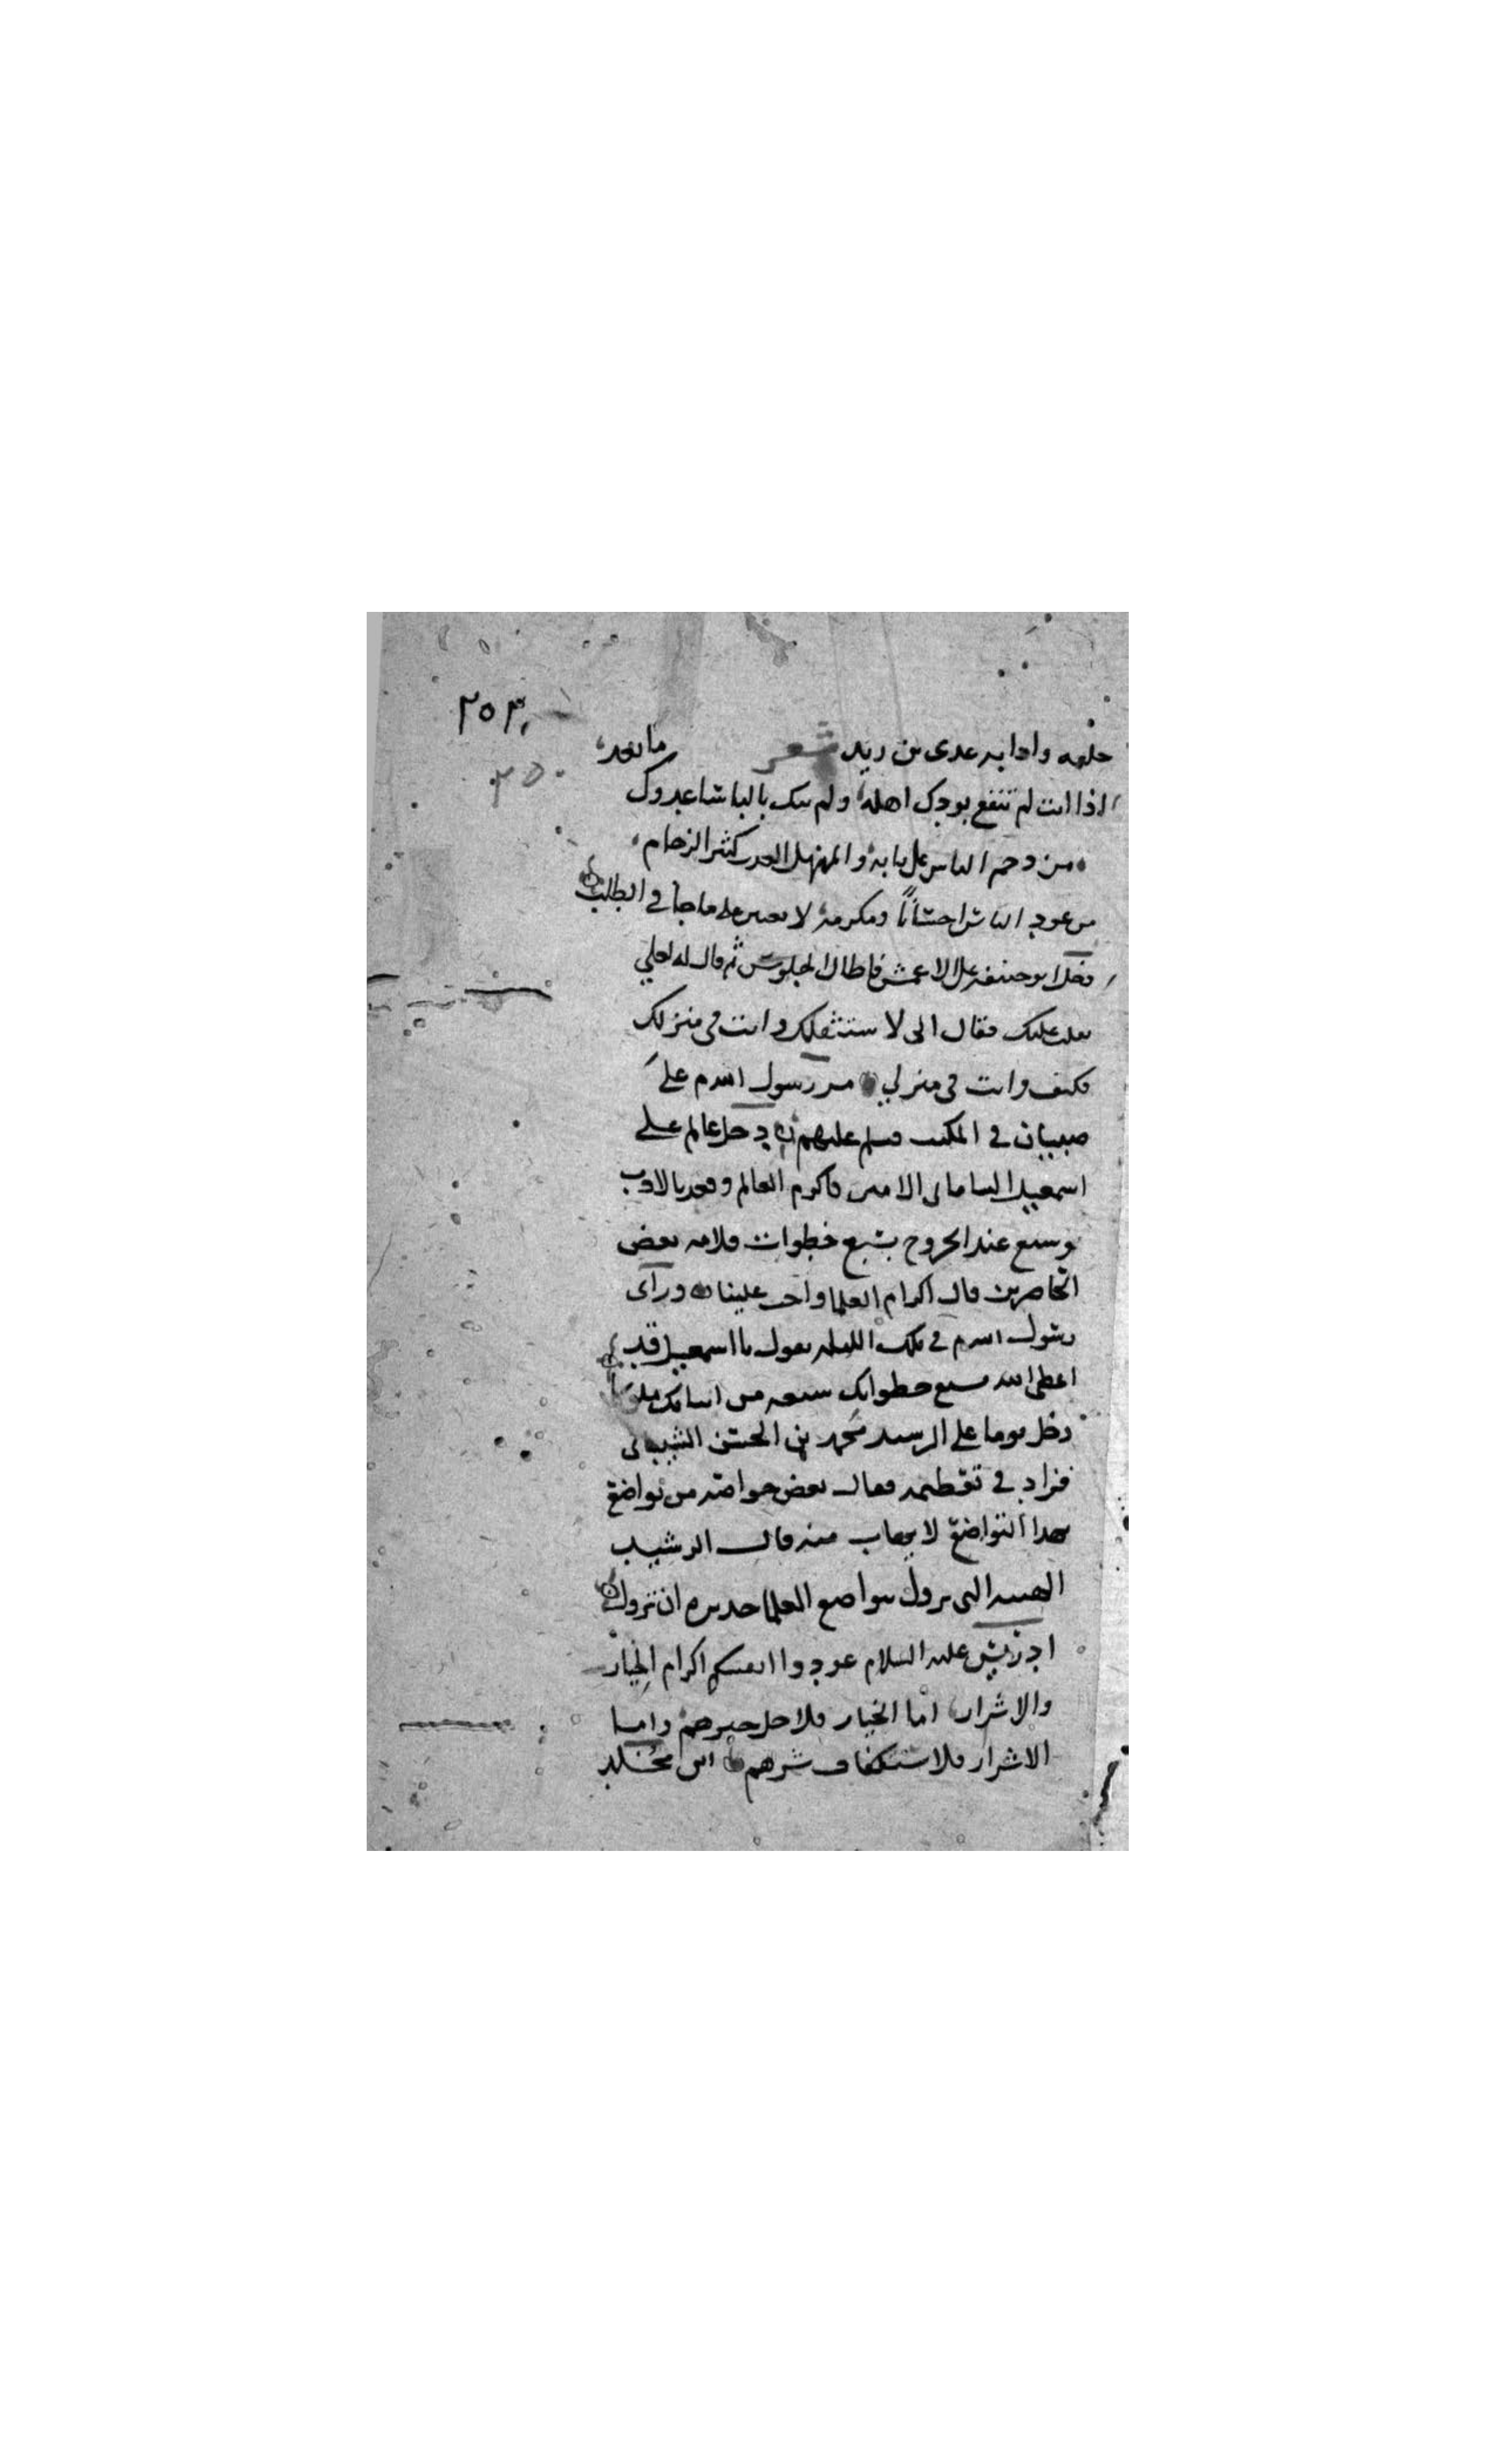 ٢٥٣
٢٥٠
وادابه عدى بن زيد شعر
اذا انت لم تنفع بودك اهله ولم تنك بالباسا عدوك فابعد
من دحم الناس على بابه والمنهل العذب كثير الزحام
من عود الناس احسانا ومكرمة لا يعتبن على ما جا في الطلب
دخل ابو حنيفه على الاعمش فاطال الجلوس ثم قال له لعلي
ثقلت عليك فقال اني لا ستثقلك وانت في منزلك
فكيف وانت في منزلي مر رسول الله م على
صبيان في المكتب فسلم عليهم دخل عالم على
اسمعيل الساماني الامير فاكرم العالم وقعد بالادب
وسيع عند الخروج بسبع خطوات فلامه بعض
الحاضرين قال اكرام العلما واجب علينا وراى
رسول الله م في تلك الليله يقول يا اسمعيل قد
اعطى الله بسبع خطواتك سبعه من ابنايك ملوكا
دخل يوما على الرشيد محمد بن الحسن الشيباني
فزاد في تعظيمه فقال بعض خواصه من تواضع
بهذا التواضع لا يهاب منه قال الرشيد
الهيبه التي تزول بتواضع العلما جديره ان تزول
ادريس عليه السلام عودوا انفسكم اكرام الخيار
والاشرار اما الخيار فلاجل خيرهم واما
الاشرار فلاستكفاف شرهم ابن مخلد